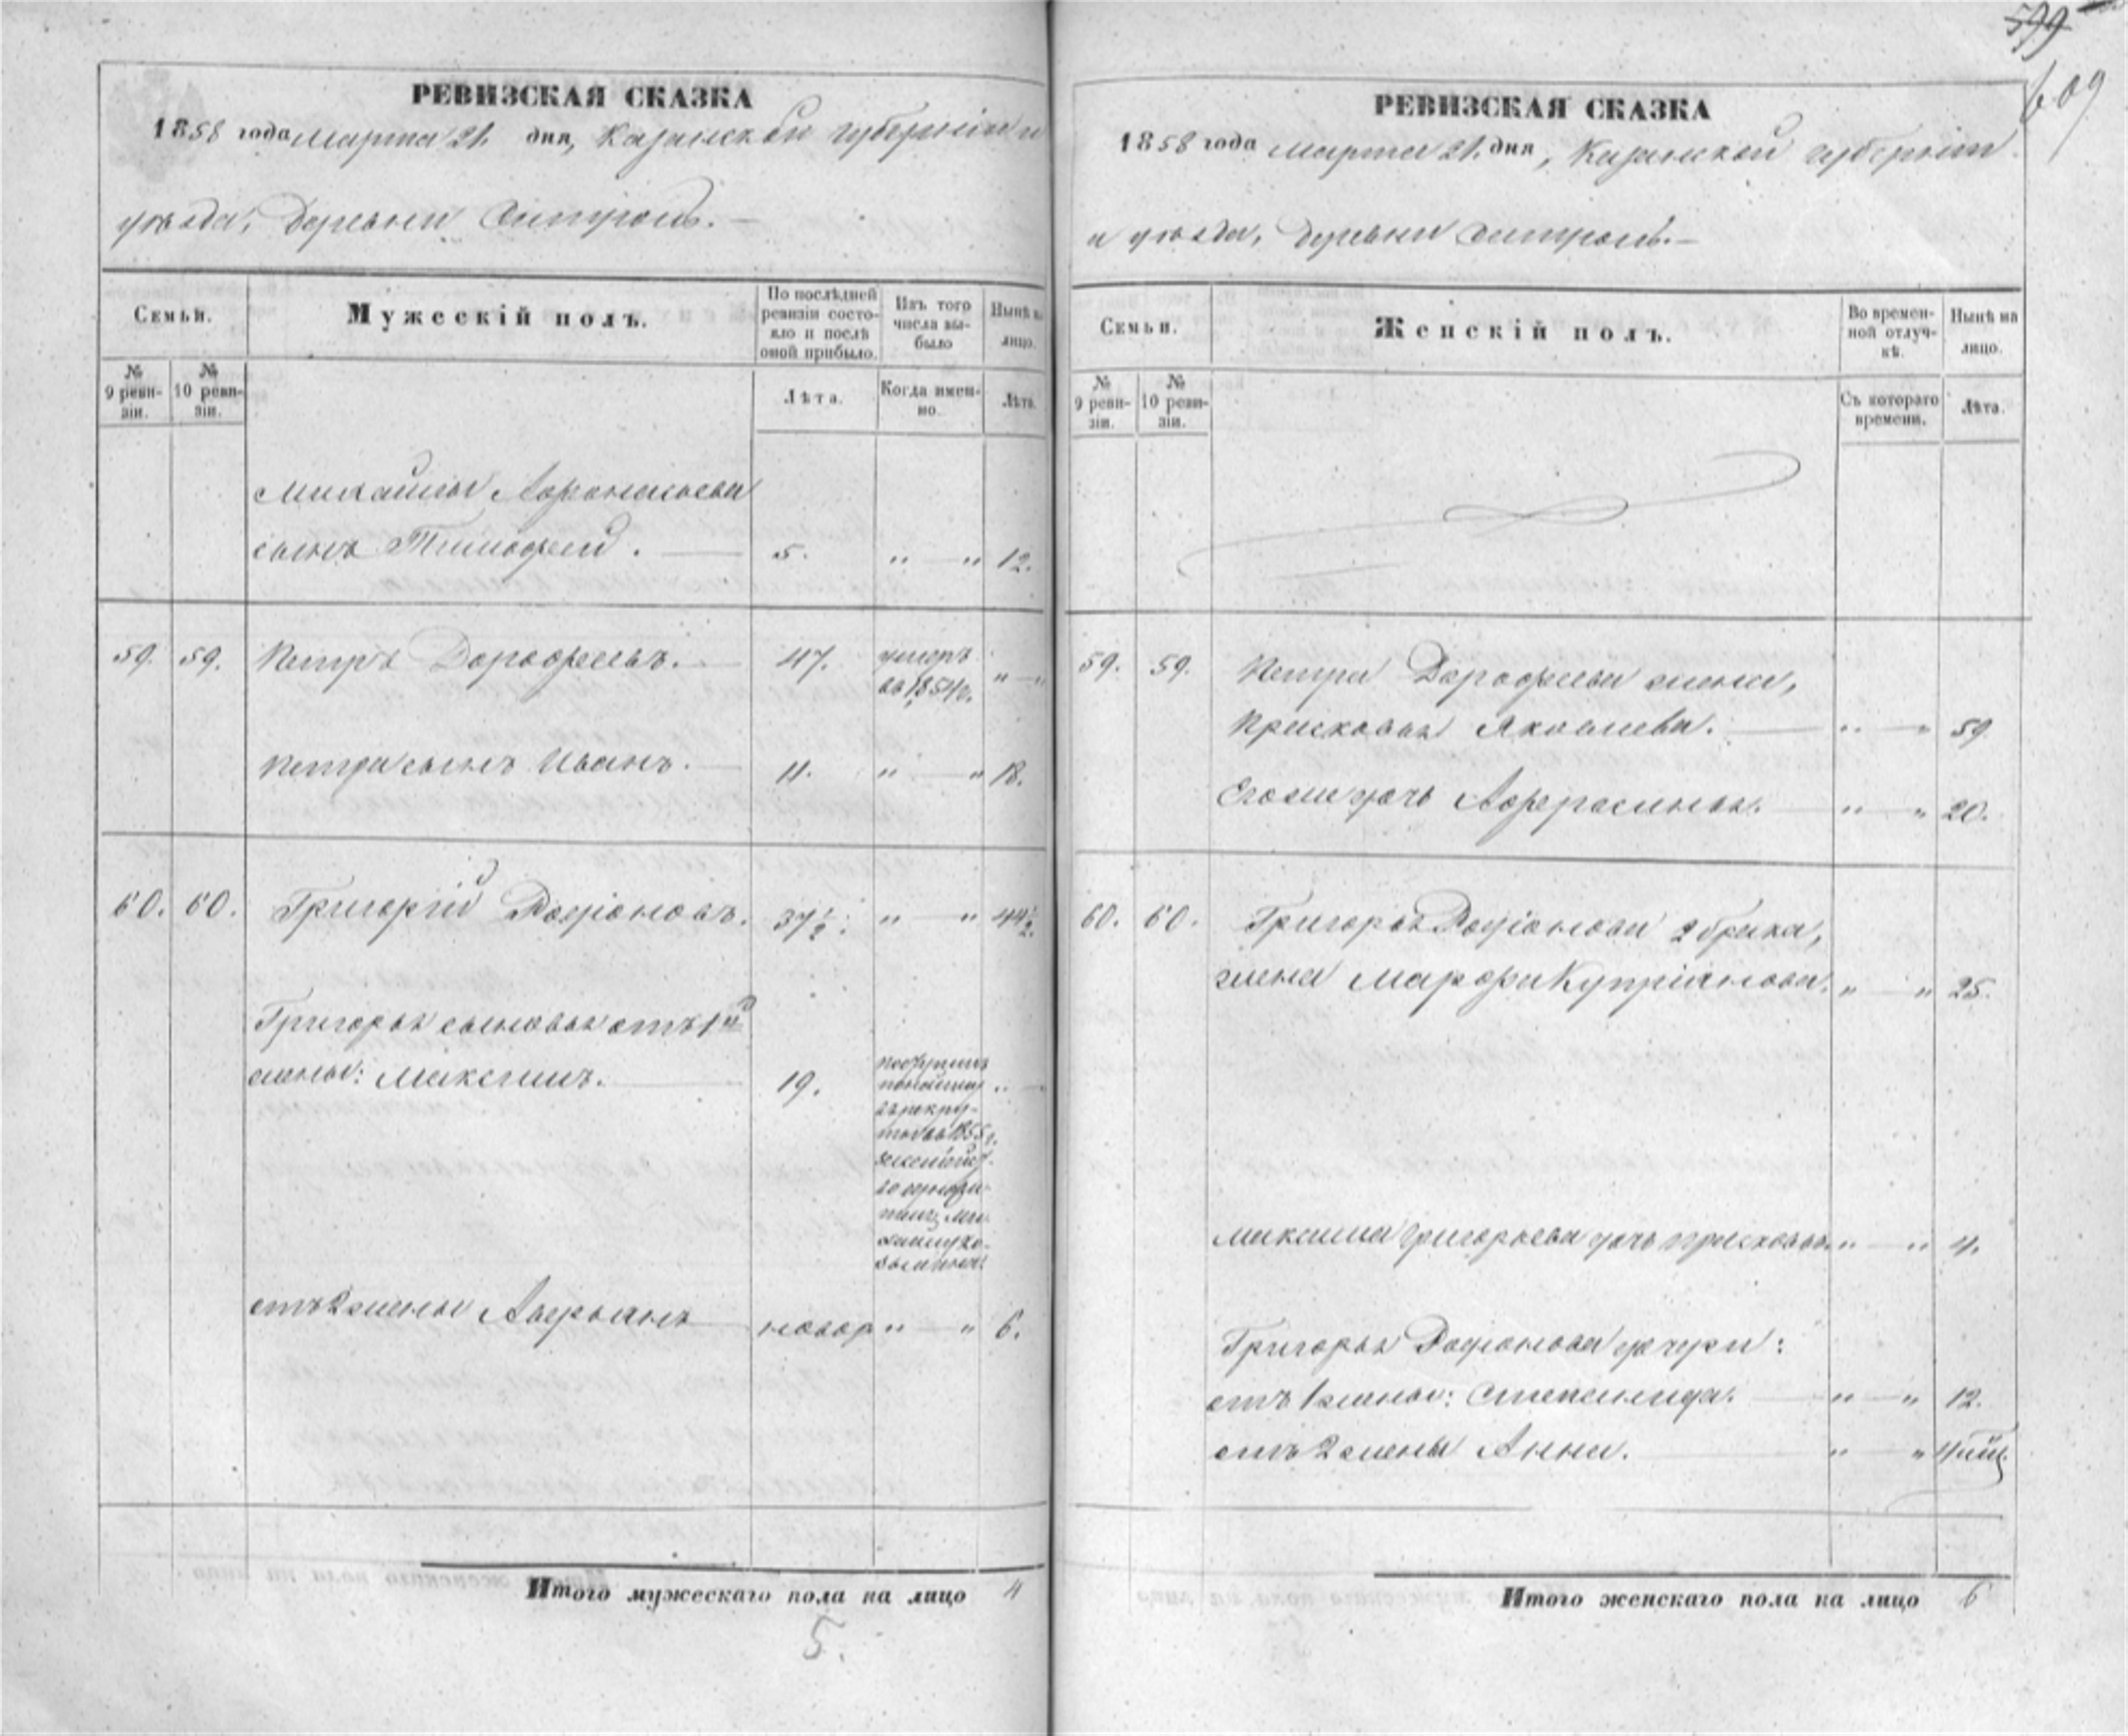 599
609
РЕВИЗСКАЯ СКАЗКА
1858 года Марта 21. дня, Казанской губерніи и
уѣзда, деревни
Семьи.
Мужескій полъ.
По послѣдней ревизіи состояло и послѣ оной прибыло.
Изъ того числа выбыло
Нынѣ на лицо.
№ 9 ревизіи.
№ 10 ревизіи.
Лѣта.
Когда именно.
Лѣта.
Михайлы Афонасьева
сынъ Тимофей. — 5. " — " 12.
59. 59. Петръ Дорофеевъ. — 47. умеръ " — "
въ 1854 г.
Петра сынъ Иванъ. — 11. " — " 18.
60. 60. Григорій Родіоновъ. 37½. " " 44½.
Григорья сыновья отъ 1й
жены: Максимъ. — 19. " —
въ рекру-
ты въ 1855 г.
отъ 2 жены Аверьянъ новор " — " 6.
Итого мужескаго пола на лицо 4
5.
РЕВИЗСКАЯ СКАЗКА
1858 года Марта 21. дня, Казанской губерніи
и уѣзда, деревни
Семьи.
Женскій полъ.
Во временной отлучкѣ.
Нынѣ на лицо.
№ 9 ревизіи.
№ 10 ревизіи.
Съ котораго времени.
Лѣта.
59. 59. Петра Дорофеева жена,
Прасковья Яковлева. — " — " 59
Его же дочь Афросинья. — " — " 20.
60. 60. Григорья Родіонова 2 брака,
жена Марфа Купріянова. " — " 25.
Максима Григорьева дочь Прасковья. " — " 4.
Григорья Родіонова дочери:
отъ 1 жены: Степанида. — " — " 12.
отъ 2 жены Анна. — " " 4 мѣц.
Итого женскаго пола на лицо 6